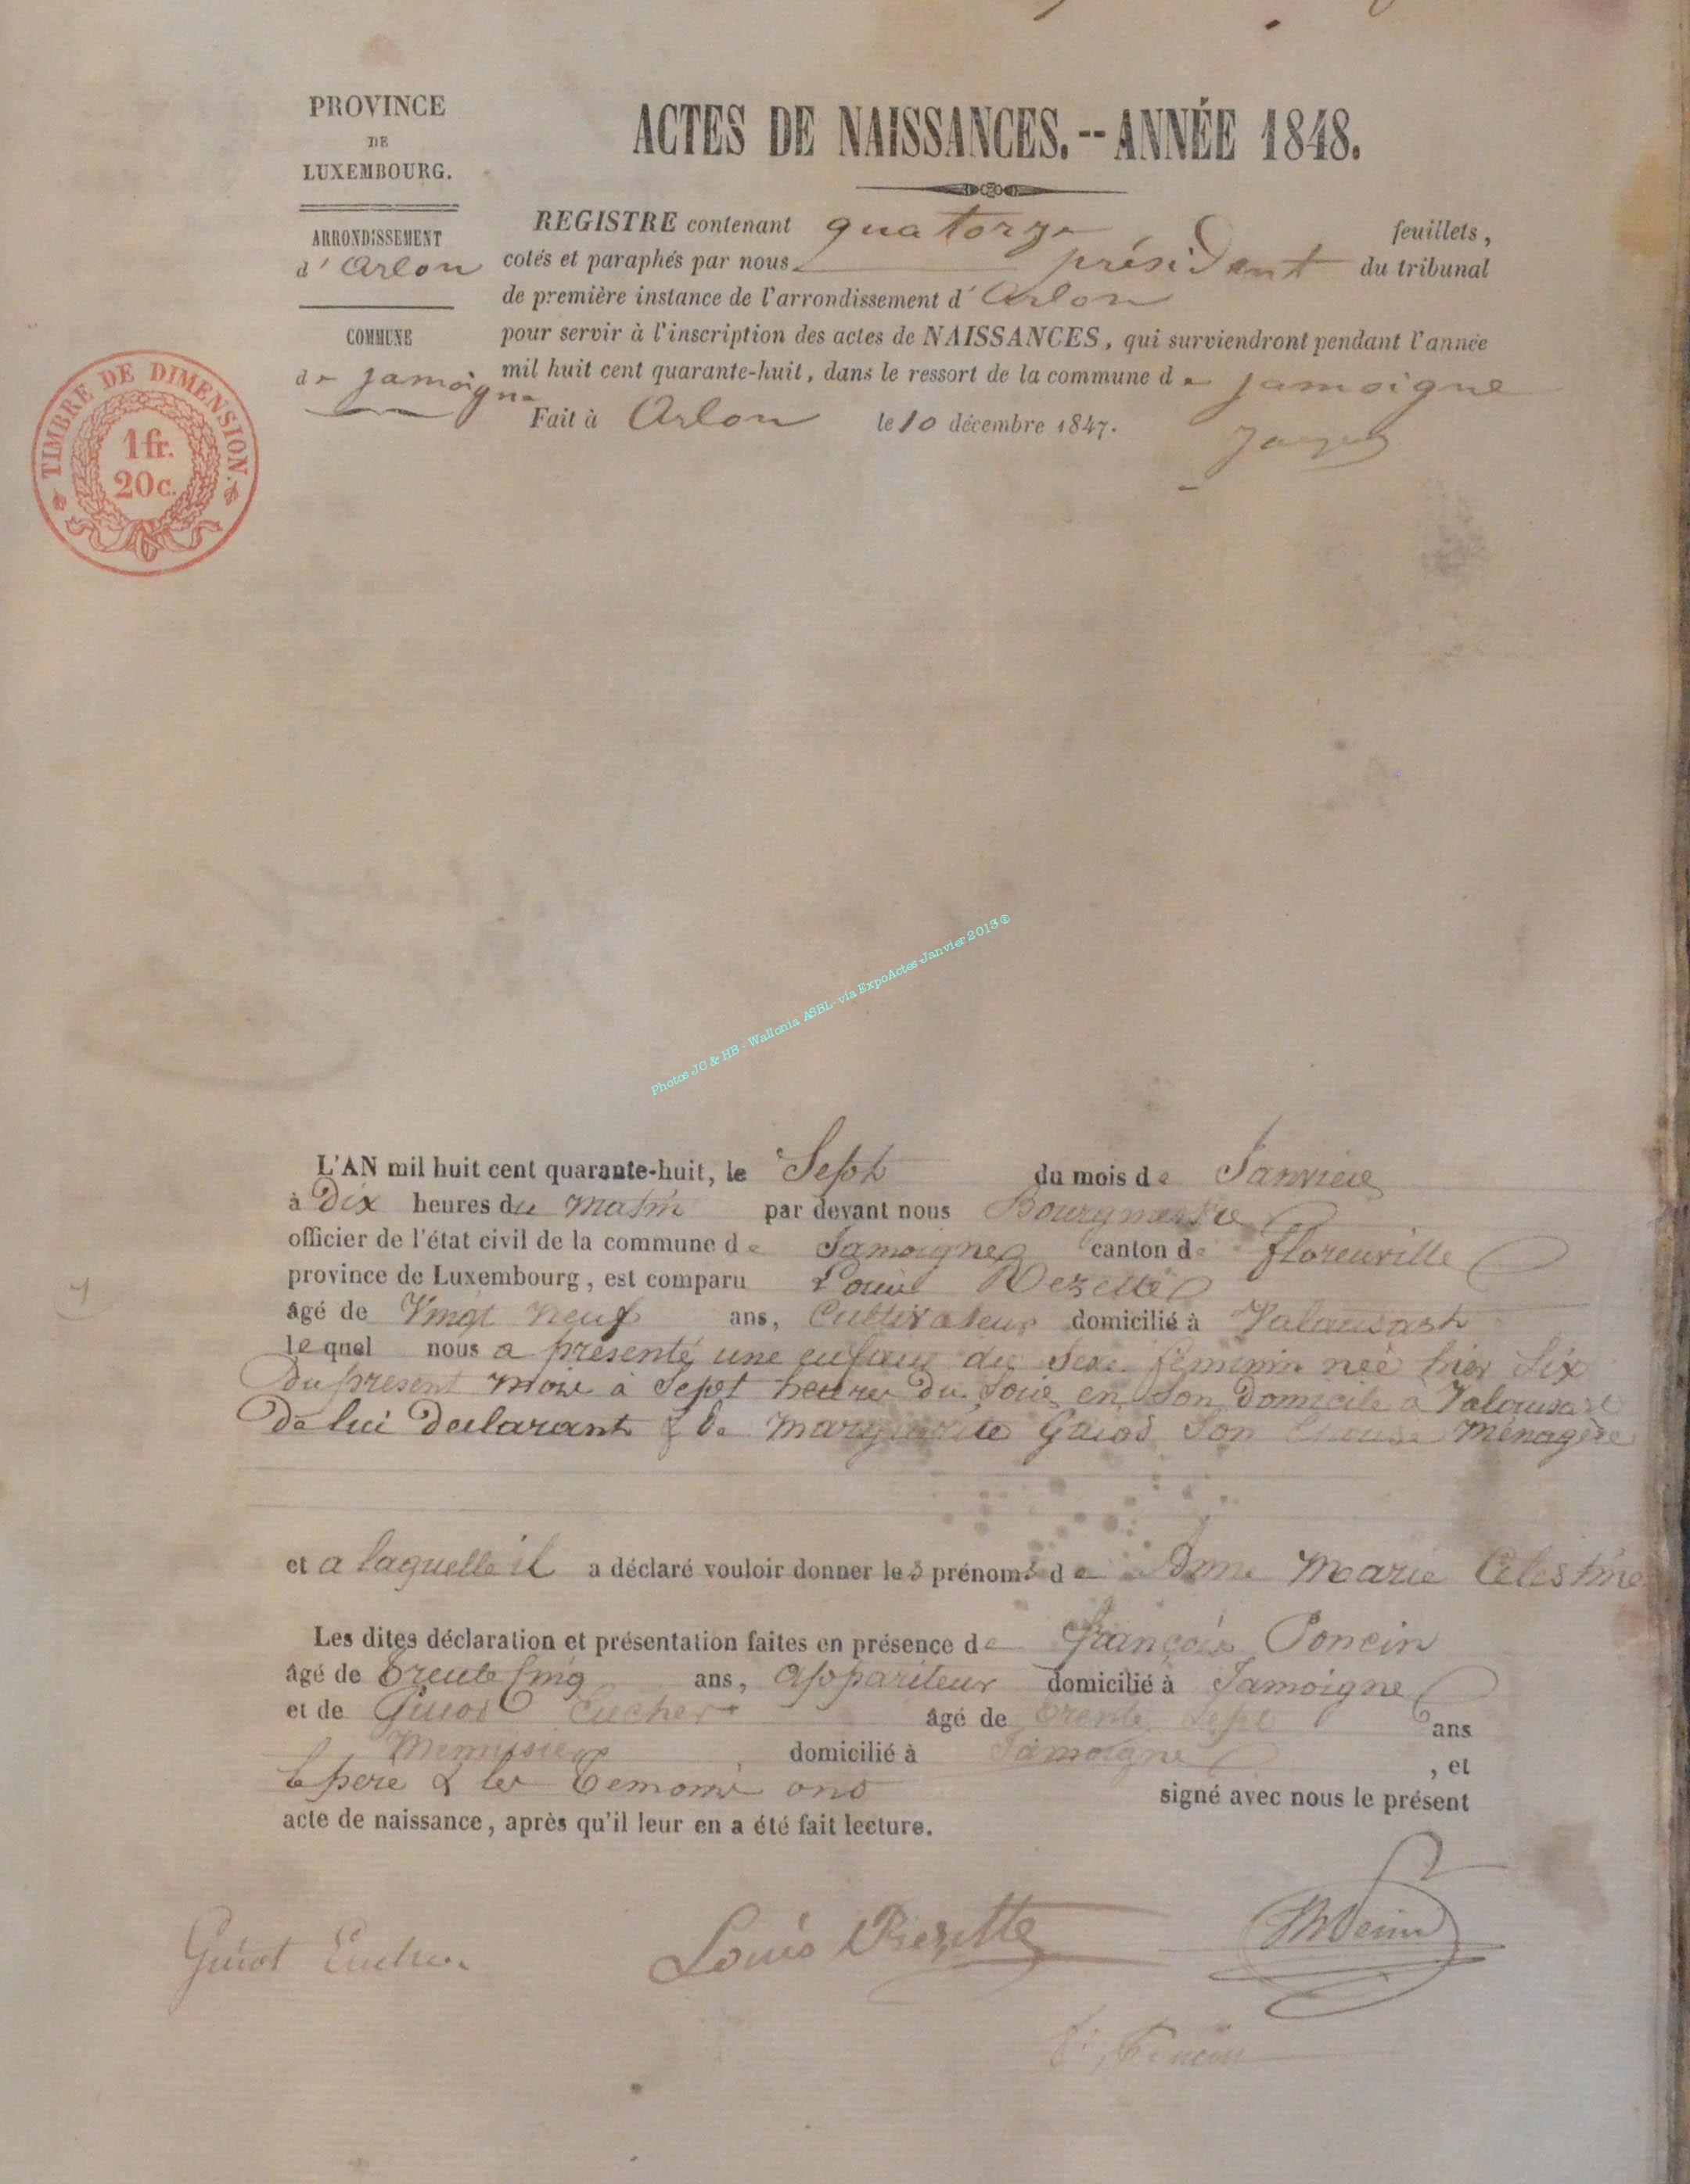 PROVINCE
DE
LUXEMBOURG.
ARRONDISSEMENT
d' Arlon
COMMUNE
de Jamoigne
TIMBRE DE DIMENSION.
1 fr.
20 c.
ACTES DE NAISSANCES. -- ANNÉE 1848.
REGISTRE contenant quatorze feuillets,
cotés et paraphés par nous président du tribunal
de première instance de l'arrondissement d' Arlon
pour servir à l'inscription des actes de NAISSANCES, qui surviendront pendant l'année
mil huit cent quarante-huit, dans le ressort de la commune de Jamoigne
Fait à Arlon le 10 décembre 1847.
Photos JC & HB - Wallonia ASBL - via ExpoActes Janvier 2013 ©
L'AN mil huit cent quarante-huit, le Sept du mois de Janvier
à Dix heures du matin par devant nous Bourgmestre
officier de l'état civil de la commune de Jamoigne canton de florenville
province de Luxembourg, est comparu Louis Dezette
âgé de Vingt neuf ans, Cultivateur domicilié à Valansart
lequel nous a présenté une enfant du sexe feminin née hier Six
du présent mois à Sept heures du Soir en Son Domicile à Valansart
de lui declarant & de Marguerite Guiot Son Epouse Ménagère
et a laquelle il a déclaré vouloir donner les prénoms de Anne Marie Celestine
Les dites déclaration et présentation faites en présence de François Poncin
âgé de trente cinq ans, appariteur domicilié à Jamoigne
et de Guiot Eucher âgé de trente Sept ans
Menuisier domicilié à Jamoigne, et
le père & les temoins ont signé avec nous le présent
acte de naissance, après qu'il leur en a été fait lecture.
Guiot Eucher
Louis Dezette